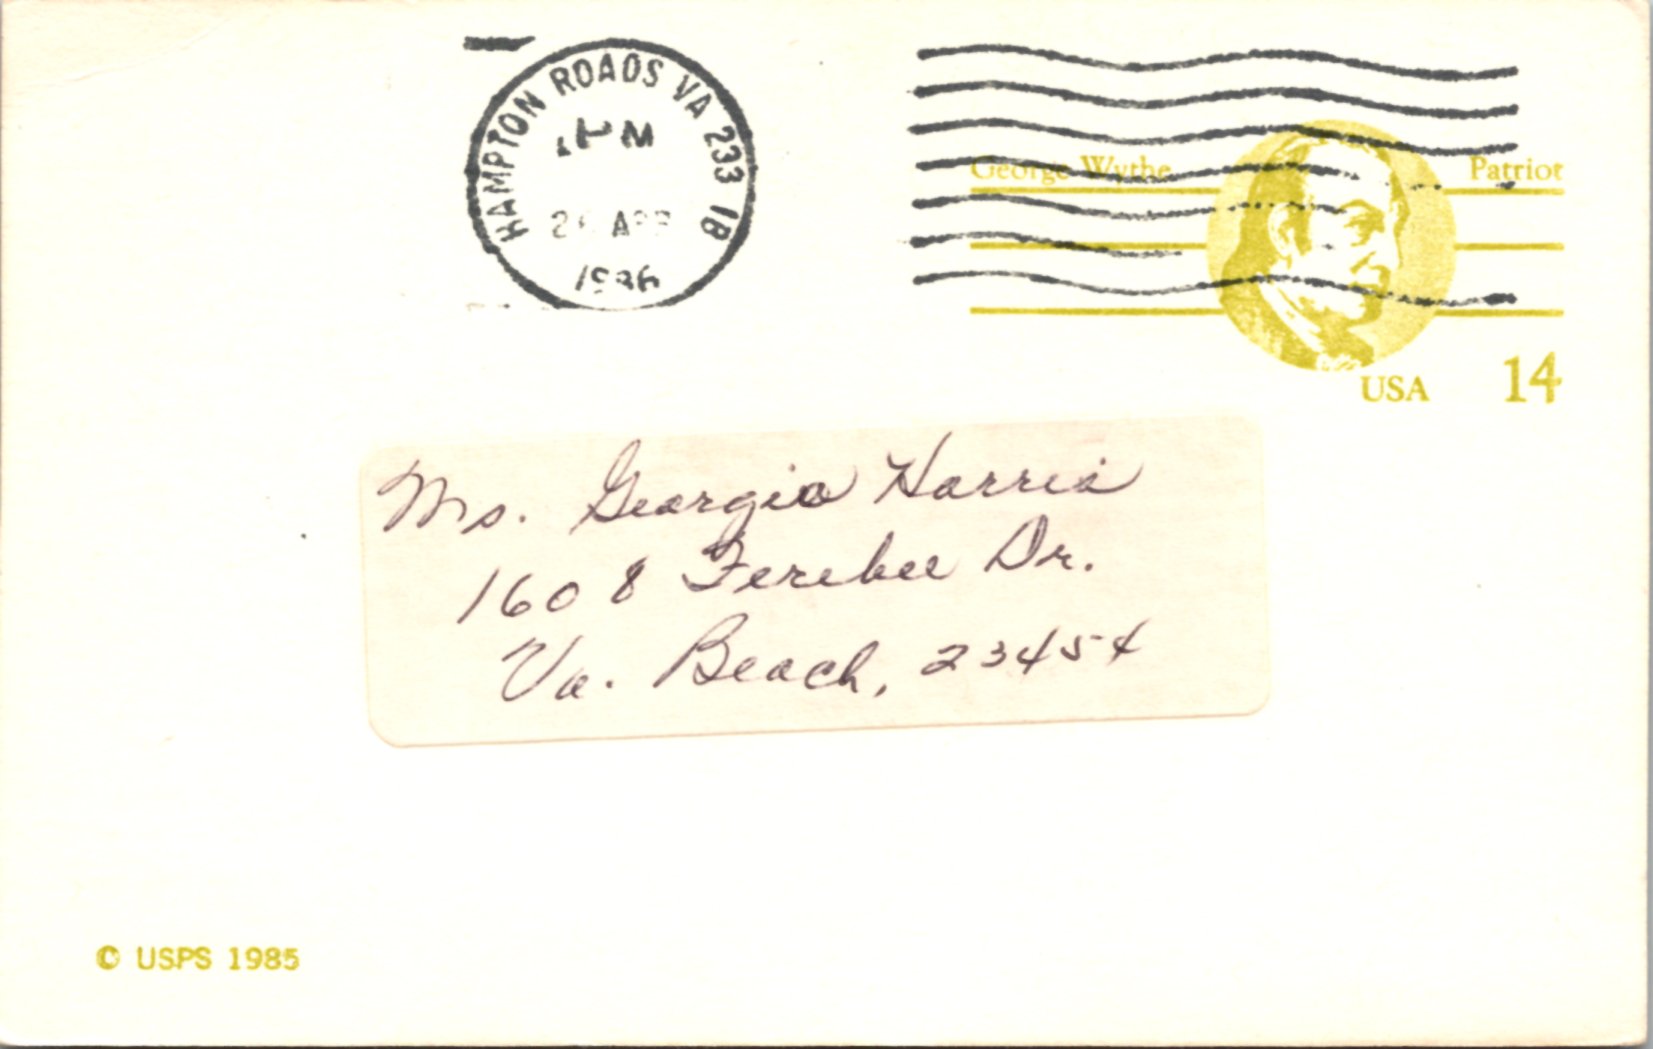 HAMPTON ROADS VA 233 1B
PM
APR
1986
George Wythe Patriot
USA 14
Ms. Georgia Harris
1608 Ferebee Dr.
Va. Beach, 23454
© USPS 1985